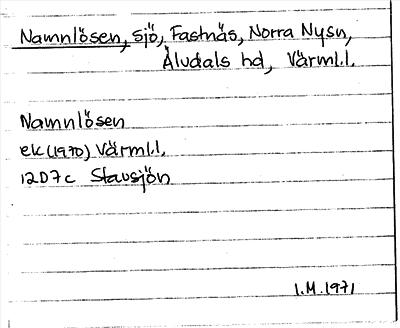 Namnlösen, sjö, Fastnäs, Norra Nysn,
Älvdals hd, Värml.l.
Namnlösen
ek (1970) Värml.l.
12D7c Stavsjön
I.M.1971